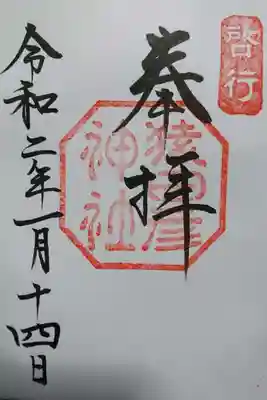 啓行
奉拝
猿田彦
神社
令和二年一月十四日